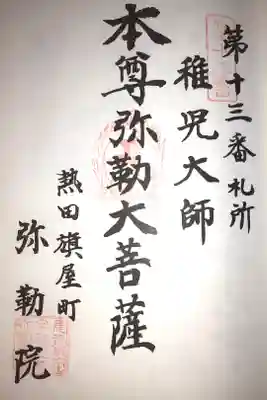 第十三番札所
稚児大師
本尊弥勒大菩薩
熱田旗屋町
弥勒院